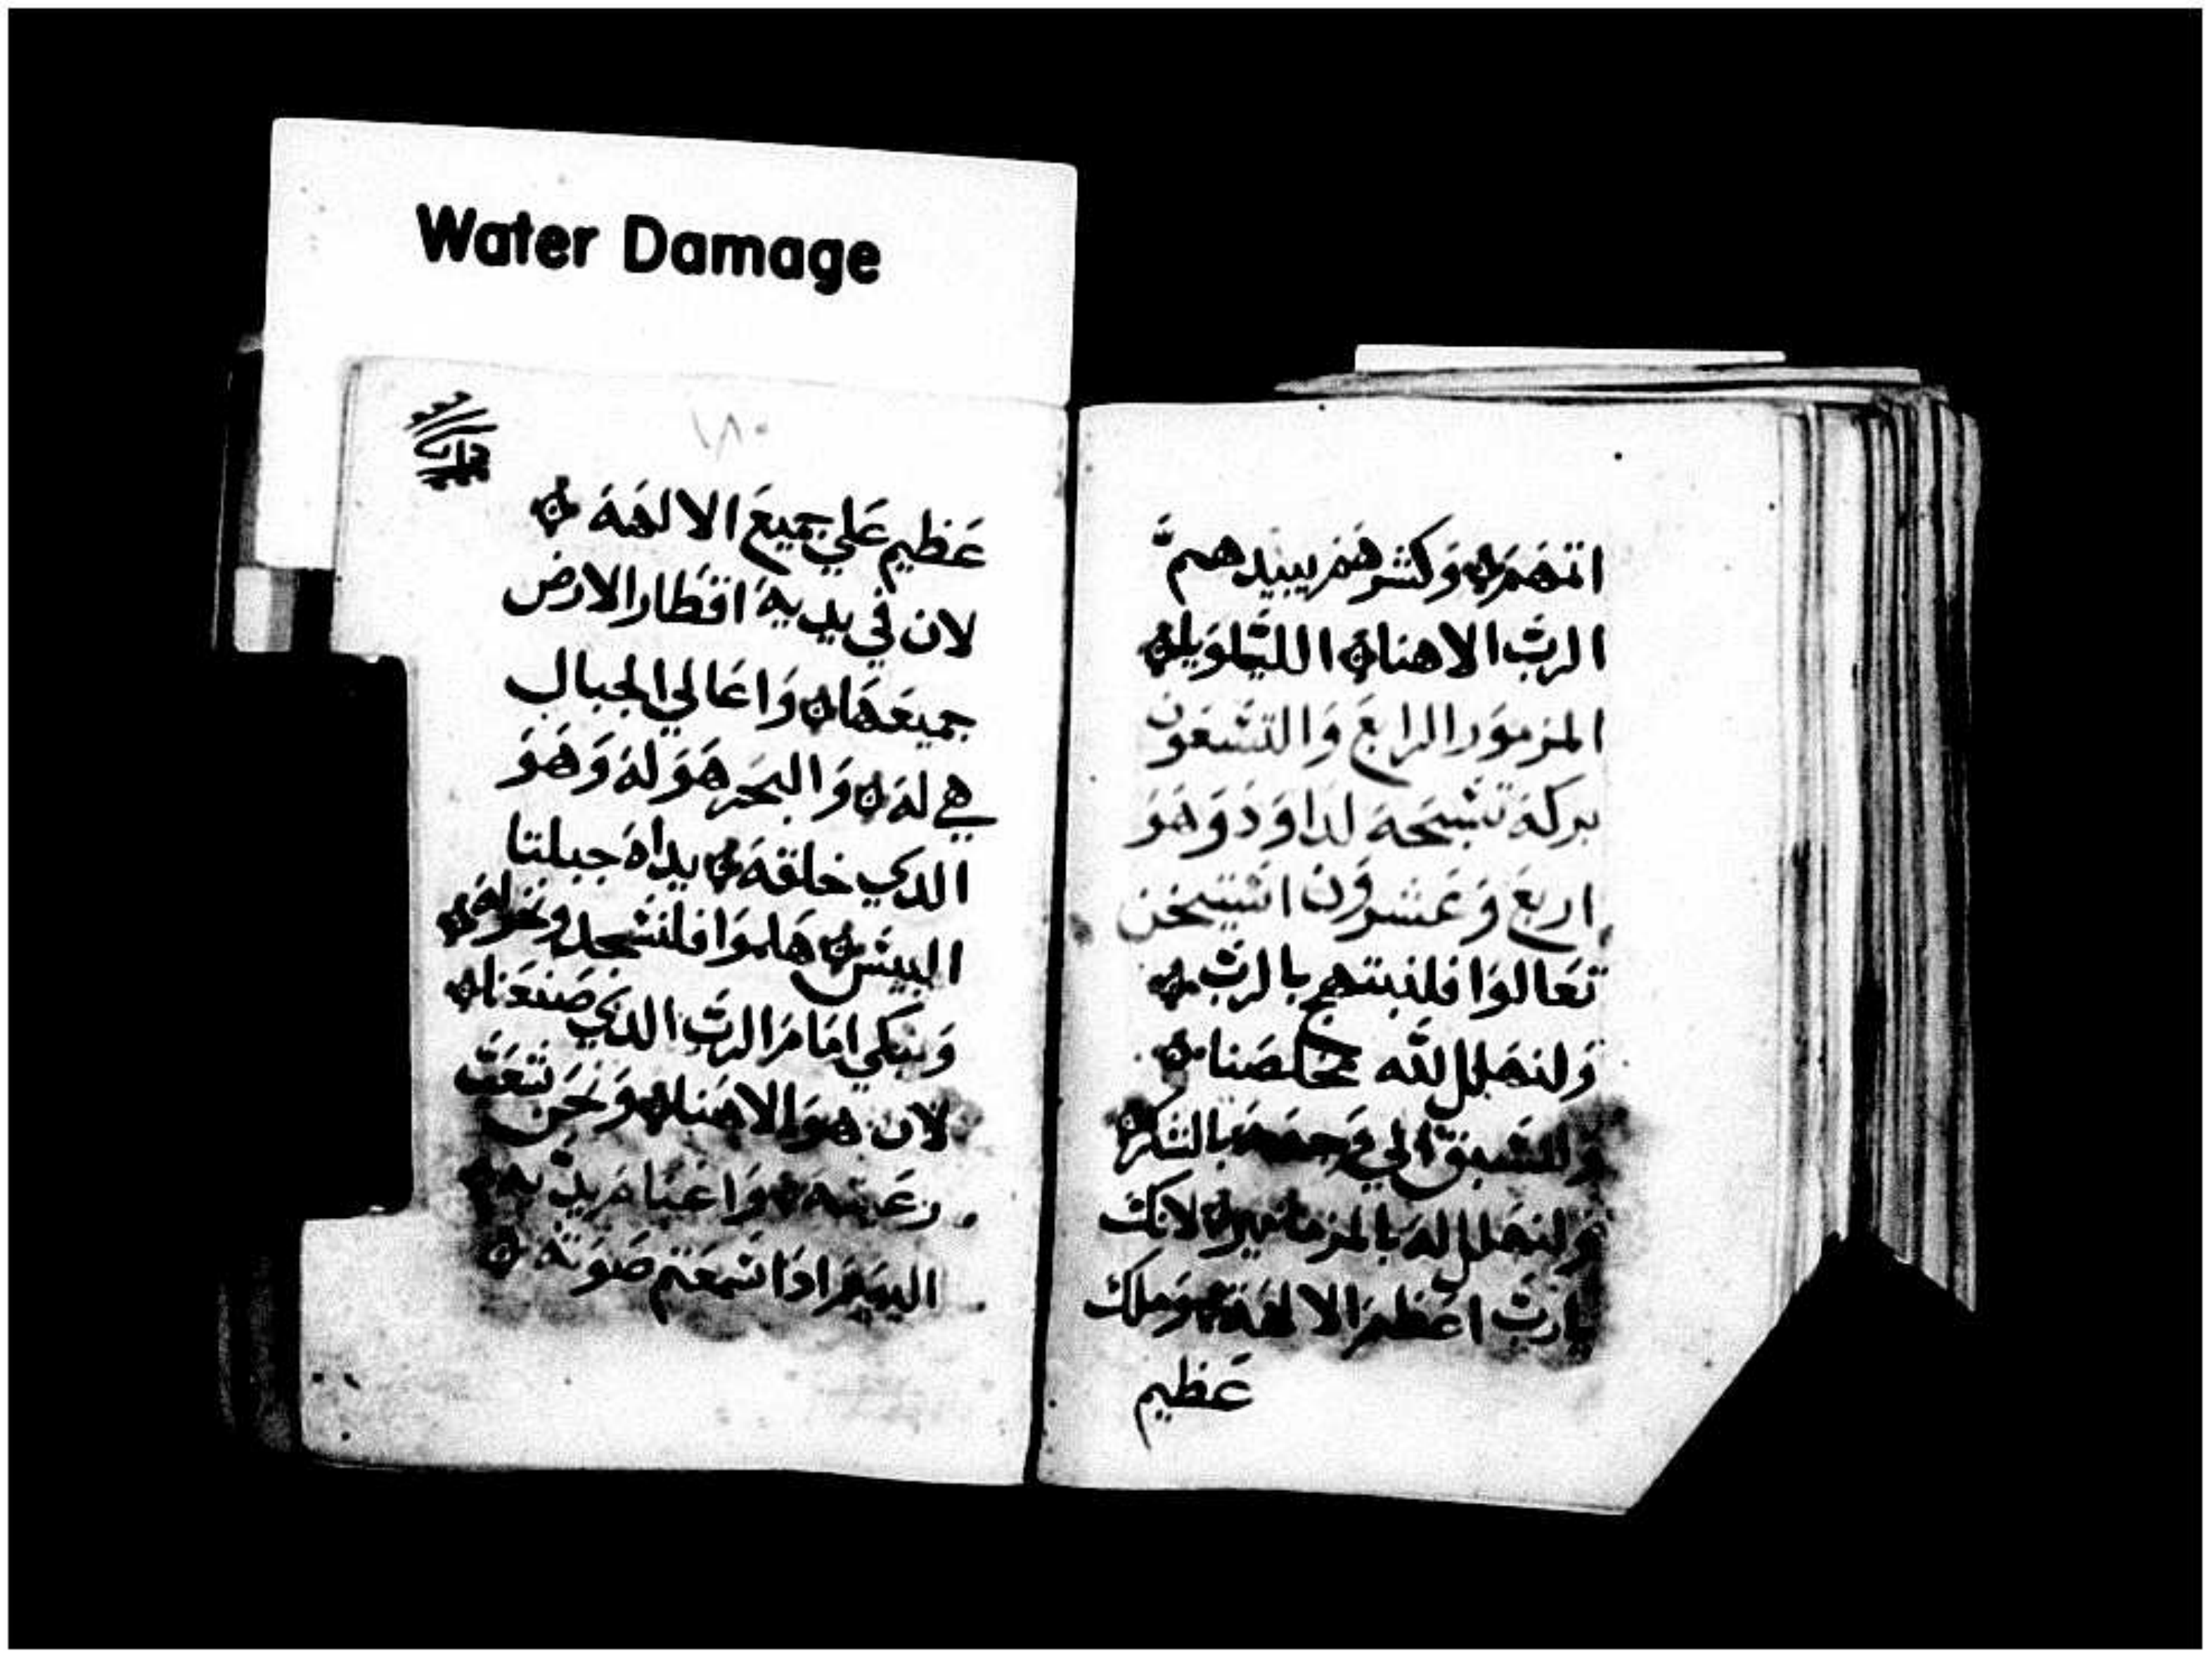 Water Damage
اثمهم وكشرهم يبيدهم
الرب الاهنا الليلويا
المزمور الرابع والتسعون
بركة تسبحة لداود وهو
اربع وعشرون استيخن
تعالوا فلنبتهج بالرب
ولنهلل لله مخلصنا
ولنسبق الي وجهه بالشكر
ولنهلل له بالمزمامير لانك
يارب اعظم الالهة وملك
عظيم
١٨٠
عظيم علي جميع الالهة
لان في يديه اقطار الارض
جميعها واعالي الجبال
هي له والبحر هو له وهو
الدي خلقه يداه جبلتا
اليبس هلموا فلنسجد ونخر له
ونبكي امام الرب الدي صنعنا
لان هو الاهنا ونحن شعب
رعيته واغنام يديه
اليوم ادا سمعتم صوته